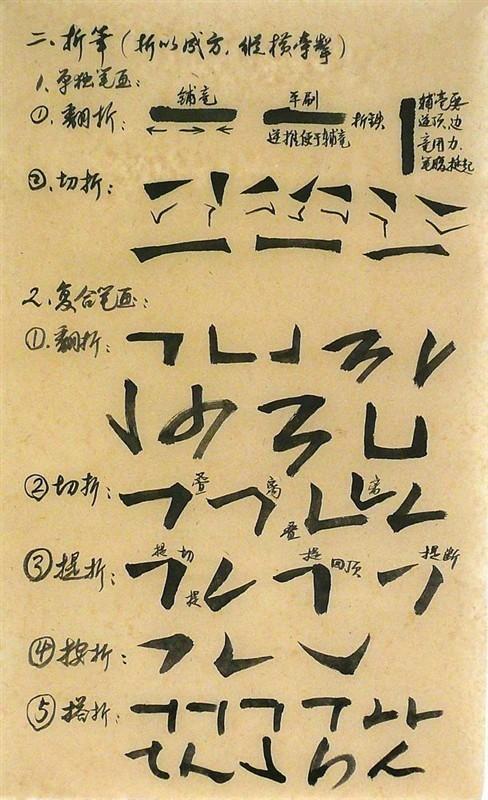 二、折笔（折以成方，纵横牵掣）
1、单独笔画：
①、翻折：
铺毫
平刷
逆推便于铺毫
折铁
铺毫要
逆顶、边
毫用力、
笔腹挺起
②、切折：
2、复合笔画：
①、翻折：
②切折：
叠
离
叠
离
③提折：
提 切
提
提 回顶
提断
④按折：
⑤搭折：